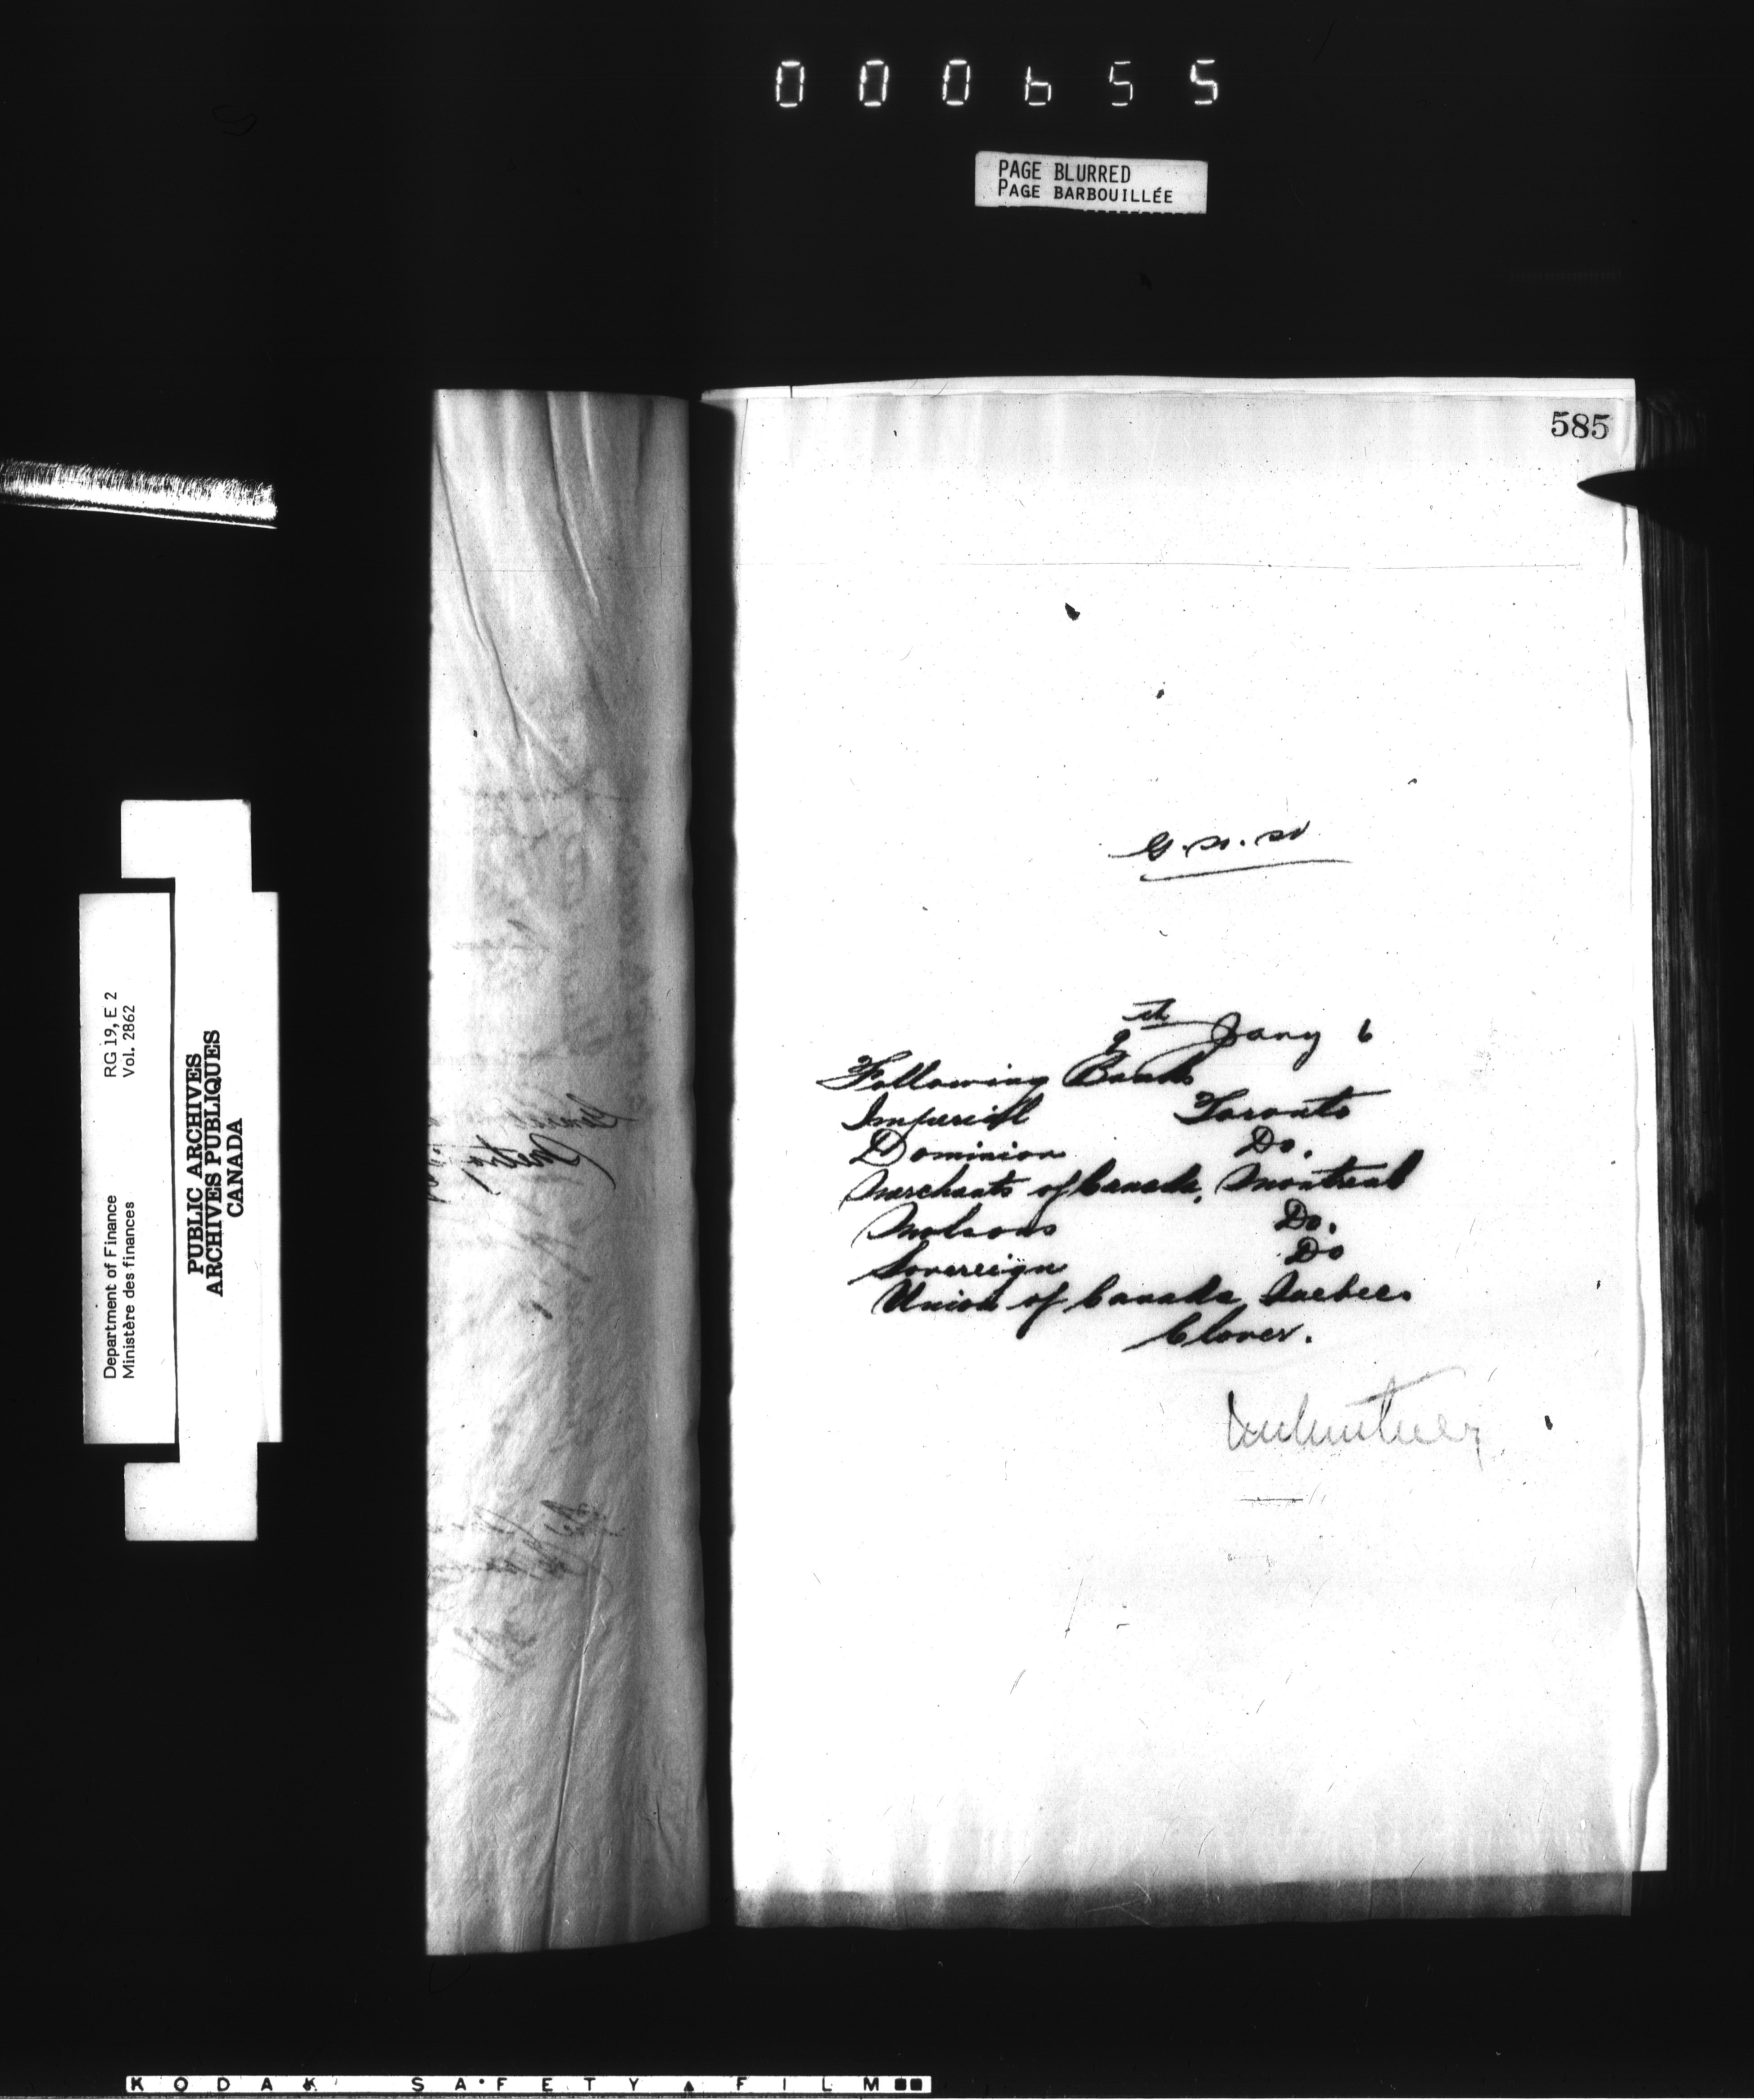 000655
PAGE BLURRED
PAGE BARBOUILLÉE
585
9th Jany 6
Following Banks
Imperial Toronto
Dominion Do.
Merchants of Canada, Montreal
Molsons Do.
Sovereign Do
Union of Canada Quebec.
Clover.
RG 19, E 2
Vol. 2862
Department of Finance
Ministère des finances
PUBLIC ARCHIVES
ARCHIVES PUBLIQUES
CANADA
KODAK SAFETY FILM